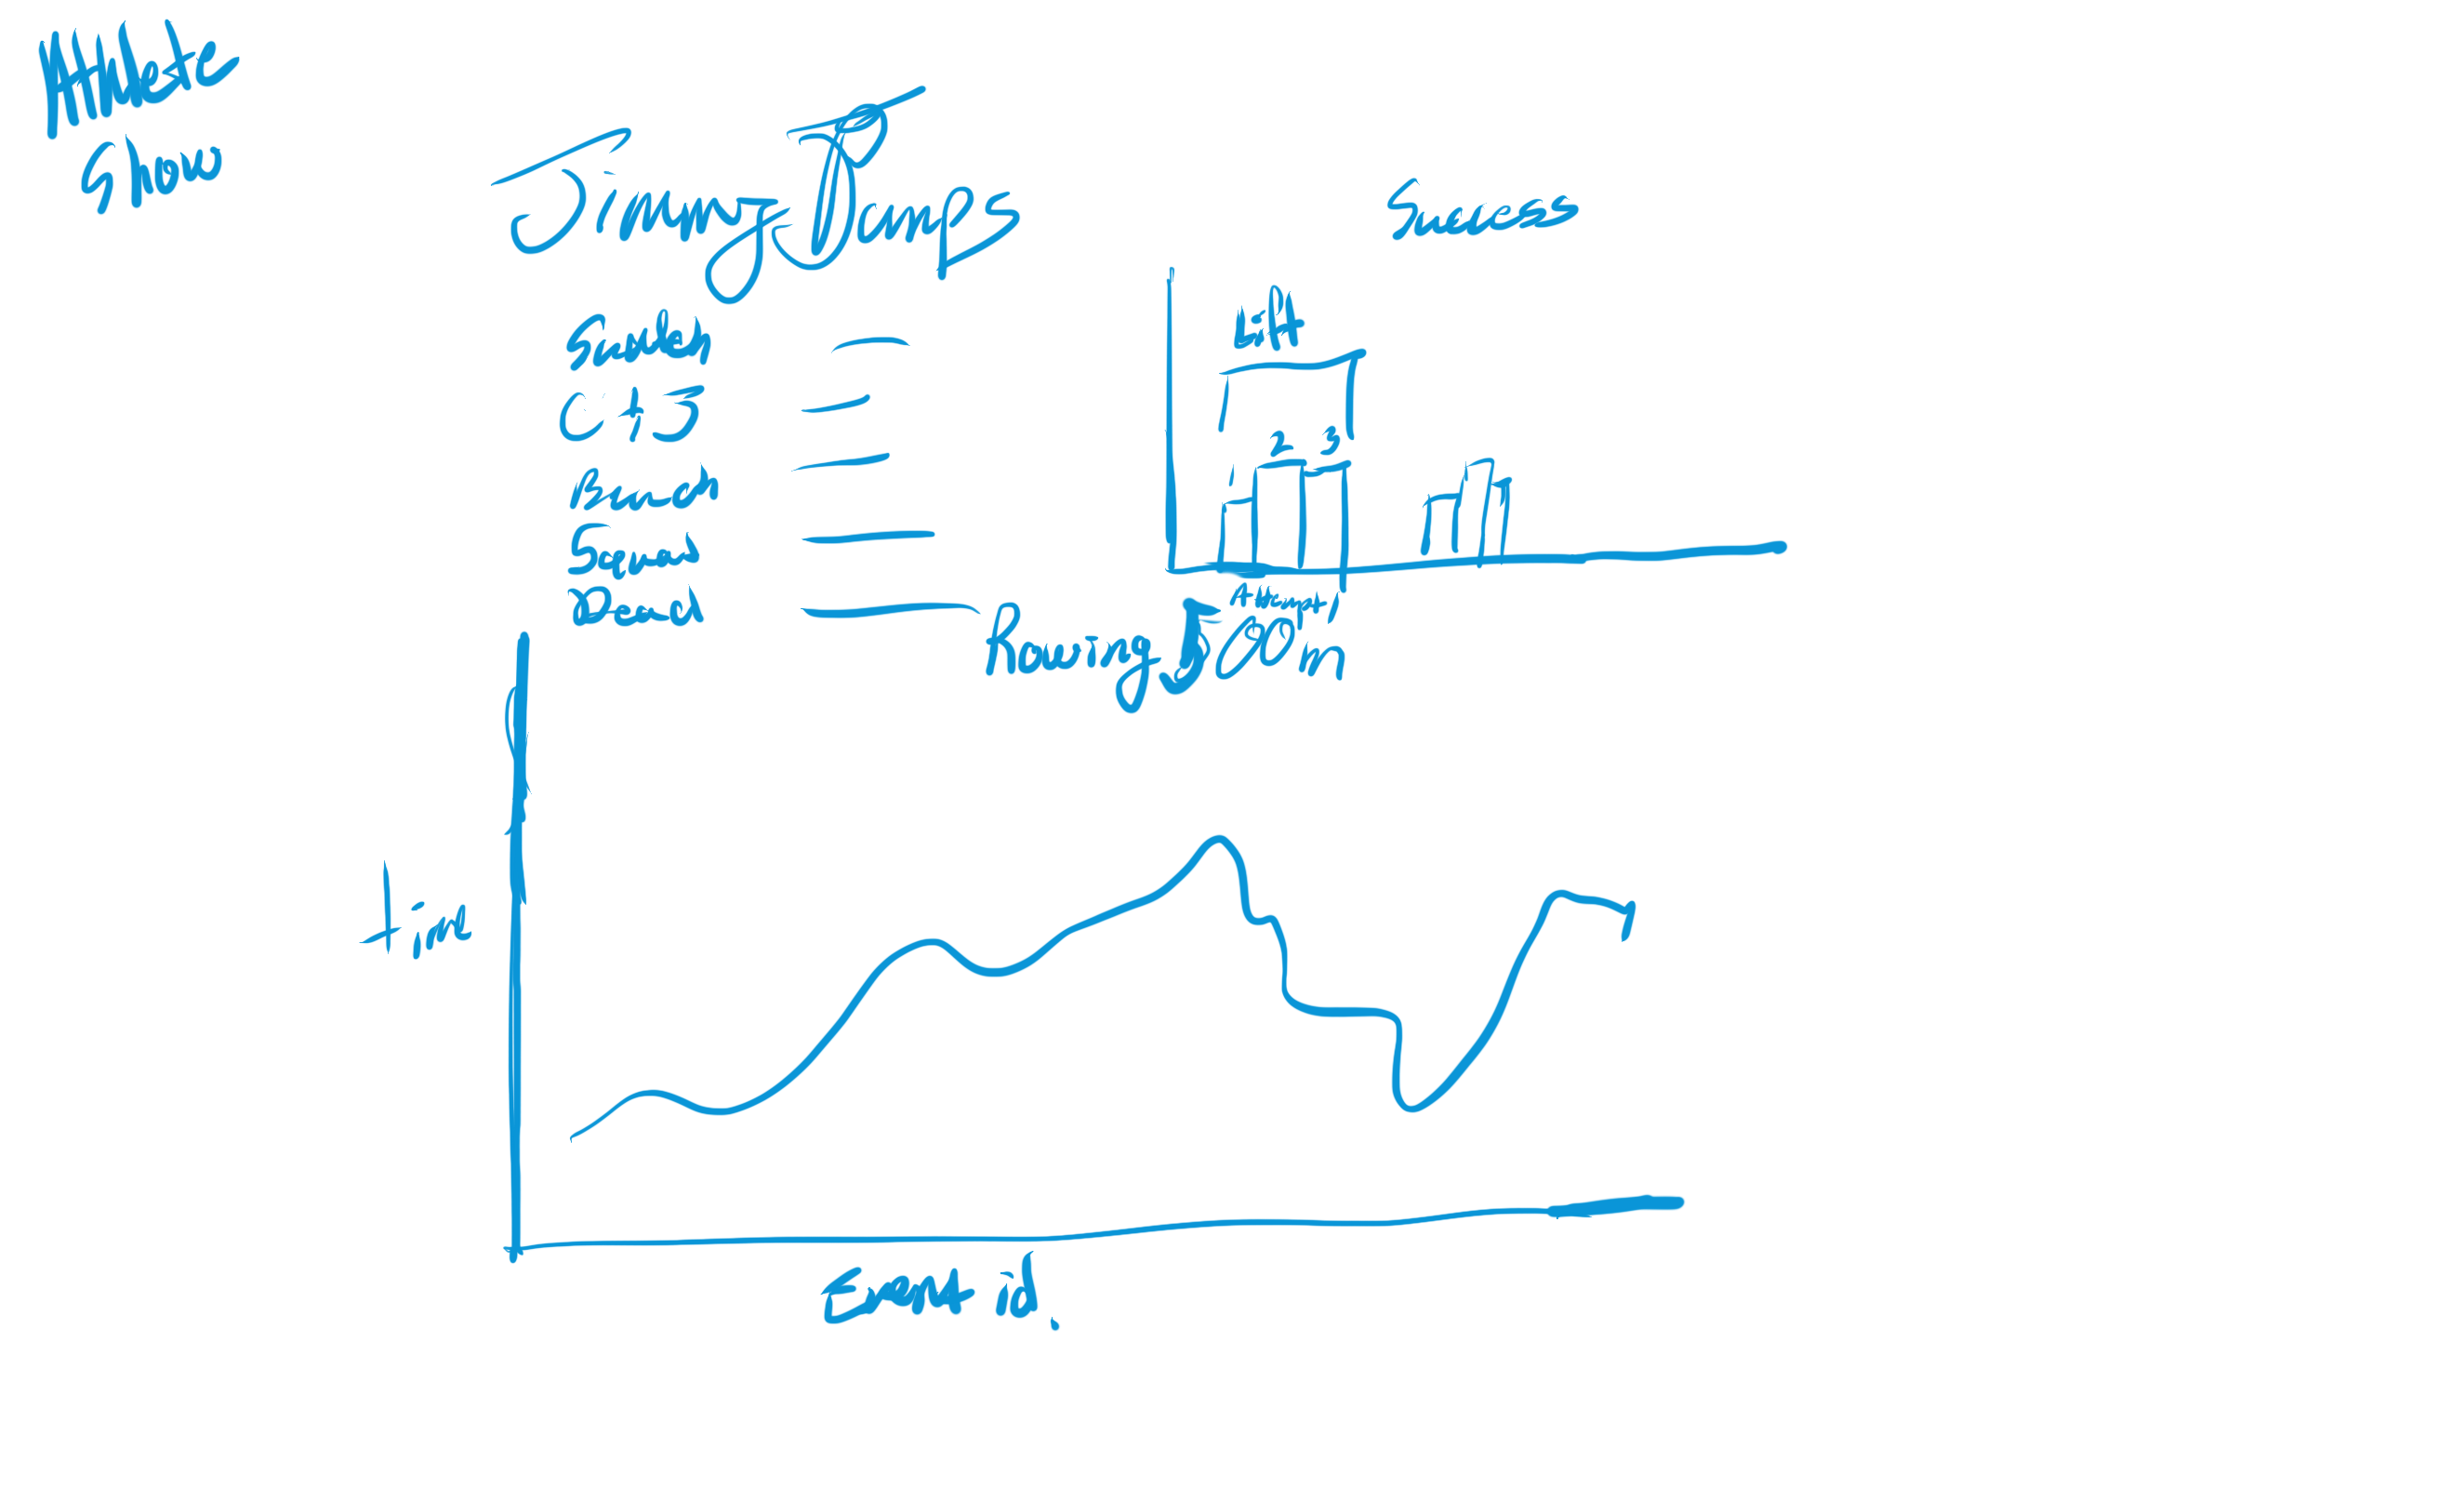 Athlete
Show
Jimmy
Success
Snatch
C + J
Bench
Squat
Dead
Lift
1 2 3
Attempt
Rowing 500 m
time
Event id.